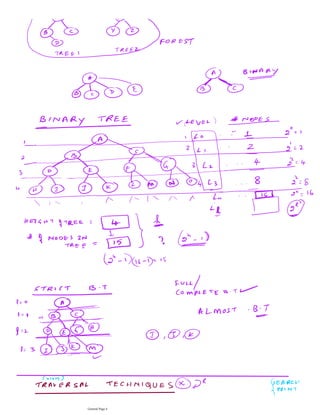 B C Y Z
D
TREE 1 TREE2 FOREST
A A BINARY
B C Y Z B C
BINARY TREE ✓ LEVEL: # NODES
1 A 1 L0 : 1 2^0 = 1
2 B C 2 L1 2 2^1 = 2
3 D E F G 3 L2 4 2^2 = 4
4 H I J K L M N O 4 L3 8 2^3 = 8
L4 16 2^4 = 16
HEIGHT OF TREE : 4
# OF NODES IN TREE = 15 ? (2^h - 1)
(2^4 - 1) (16 - 1) = 15
STRICT B.T FULL /
COMPLETE B.T
l = 0 A
l = 1 B C ALMOST B.T
l = 2 D E
l = 3 M I, J, K
TRAVERSAL TECHNIQUES SEARCH
PRINT
General Page 4